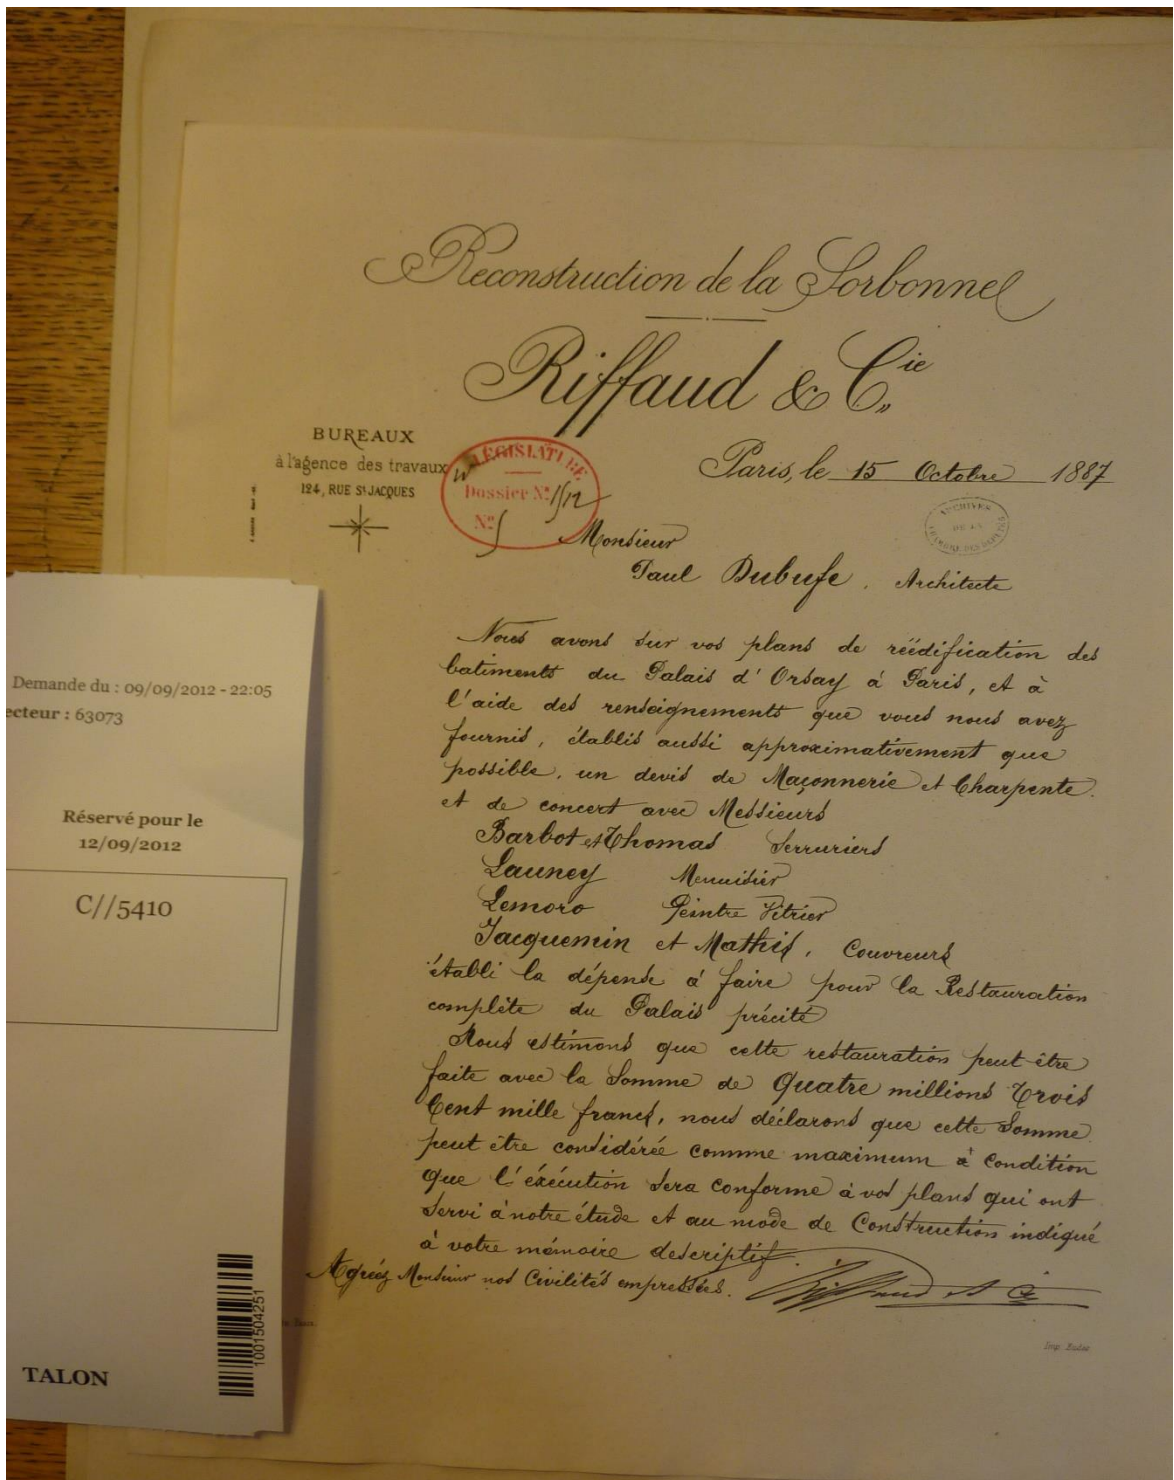 Reconstruction de la Sorbonne
Riffaud & Cie
BUREAUX
à l'agence des travaux
124, RUE St JACQUES
LÉGISLATURE
Dossier No
No
Paris, le 15 Octobre 1887
ARCHIVES
DE LA
CHAMBRE DES DÉPUTÉS
Monsieur
Paul Dubufe. Architecte
Nous avons sur vos plans de réédification des
batiments du Palais d'Orsay à Paris, et à
l'aide des renseignements que vous nous avez
fournis, établis aussi approximativement que
possible, un devis de Maçonnerie et Charpente.
et de concert avec Messieurs
Barbot et Thomas Serruriers
Launey Menuisier
Lemoro Peintre Vitrier
Jacquemin et Mathis, Couvreurs
établi la dépense à faire pour la Restauration
complète du Palais précité
Nous estimons que cette restauration peut être
faite avec la Somme de Quatre millions Trois
Cent mille francs, nous déclarons que cette Somme
peut être considérée comme maximum à Condition
que l'éxécution sera conforme à vos plans qui ont
servi à notre étude et au mode de Construction indiqué
à votre mémoire descriptif.
Agréez Monsieur nos Civilités empressées. Riffaud et Cie
Demande du : 09/09/2012 - 22:05
ecteur : 63073
Réservé pour le
12/09/2012
C//5410
1001504251
TALON